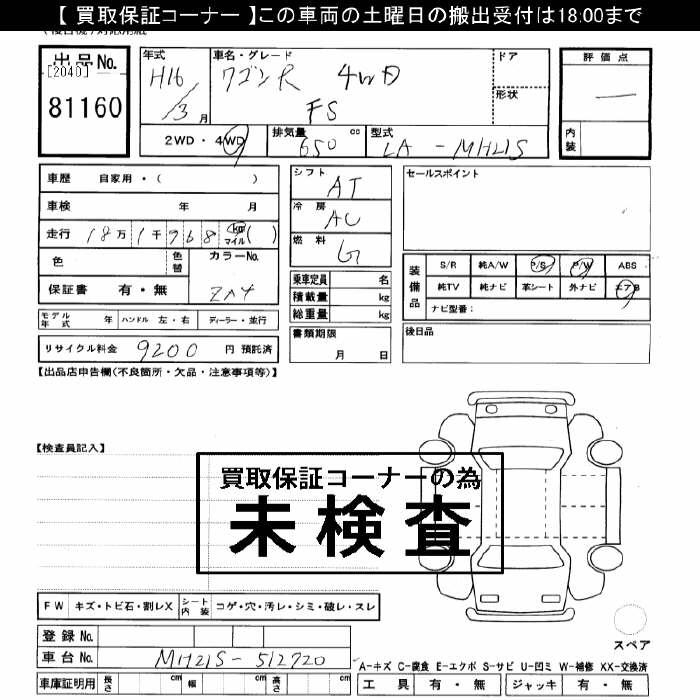 【 買取保証コーナー 】この車両の土曜日の搬出受付は18:00まで
出品No.
[2040]
81160
年式
H16
/3 月
車名・グレード
ワゴンR 4WD
FS
ドア
形状
評価点
—
内装
2WD・4WD
排気量
650 cc
型式
LA - MH21S
車歴 自家用・( )
車検 年 月
走行 18万1千968 km マイル ( )
色
色替
カラーNo.
ZA4
保証書 有・無
シフト
AT
冷房
AC
燃料
G
乗車定員 名
積載量 kg
総重量 kg
書類期限
月 日
セールスポイント
装備品
S/R 純A/W P/S P/W ABS
純TV 純ナビ 革シート 外ナビ エアB
ナビ型番:
後日品
モデル年式 年 ハンドル 左・右 ディーラー・並行
リサイクル料金 9200 円 預託済
【出品店申告欄(不良箇所・欠品・注意事項等)】
【検査員記入】
買取保証コーナーの為
未検査
FW キズ・トビ石・割レX シート内装 コゲ・穴・汚レ・シミ・破レ・スレ
登録No.
車台No. MH21S-512720
スペア
A-キズ C-腐食 E-エクボ S-サビ U-凹ミ W-補修 XX-交換済
車庫証明用 長さ cm 幅 cm 高さ cm
工具 有・無 ジャッキ 有・無